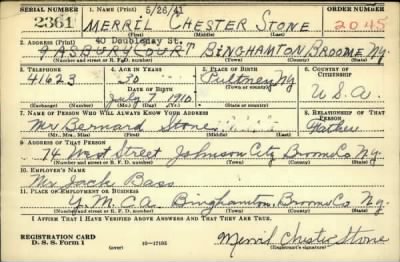 SERIAL NUMBER 1. NAME (Print) 5/26/41 ORDER NUMBER
2361 MERRIL CHESTER STONE 2045
(First) (Middle) (Last)
40 Doubleday St.
2. ADDRESS (Print)
9 ASBURY COURT BINGHAMTON, BROOME NY.
(Number and street or R. F. D. number) (Town) (County) (State)
3. TELEPHONE 4. AGE IN YEARS 5. PLACE OF BIRTH 6. COUNTRY OF CITIZENSHIP
41623 30 Pultney
DATE OF BIRTH (Town or county)
July 1910 NY U.S.A.
(Exchange) (Number) (Mo.) (Day) (Yr.) (State or country)
7. NAME OF PERSON WHO WILL ALWAYS KNOW YOUR ADDRESS 8. RELATIONSHIP OF THAT PERSON
Mr Bernard Stone Father
(Mr., Mrs., Miss) (First) (Middle) (Last)
9. ADDRESS OF THAT PERSON
74 West Street Johnson City Broome Co NY
(Number and street or R. F. D. number) (Town) (County) (State)
10. EMPLOYER'S NAME
Mr Jack Bass
11. PLACE OF EMPLOYMENT OR BUSINESS
Y.M.C.A. Binghamton, Broome Co NY.
(Number and street or R. F. D. number) (Town) (County) (State)
I AFFIRM THAT I HAVE VERIFIED ABOVE ANSWERS AND THAT THEY ARE TRUE.
REGISTRATION CARD
D. S. S. Form 1 (over) 16—17105 Merril Chester Stone
(Registrant's signature)